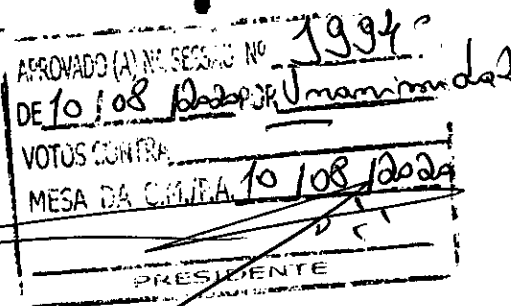 APROVADO (A) NA SESSÃO Nº 1994
DE 10/08/2020 POR Unanimidad
VOTOS CONTRA
MESA DA C.M./P.A. 10/08/2020
PRESIDENTE